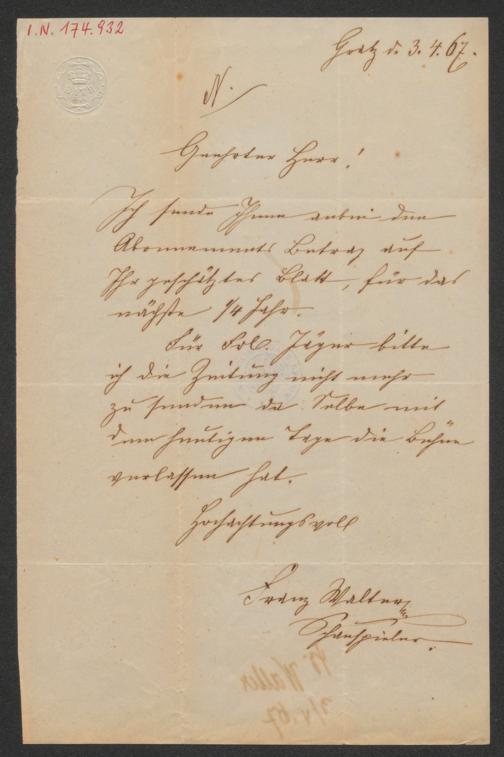 I.N. 174.932
Gratz d. 3. 4. 67.
N.
Geehrter Herr!
Ich sende Ihnen anbei den
Abonnements Betrag auf
Ihr geschätztes Blatt, für das
nächste 1/4 Jahr.
Für Frl. Jäger bitte
ich die Zeitung nicht mehr
zu senden da Selbe mit
dem heutigen Tage die Bühne
verlassen hat.
Hochachtungsvoll
Franz Walter
Schauspieler.